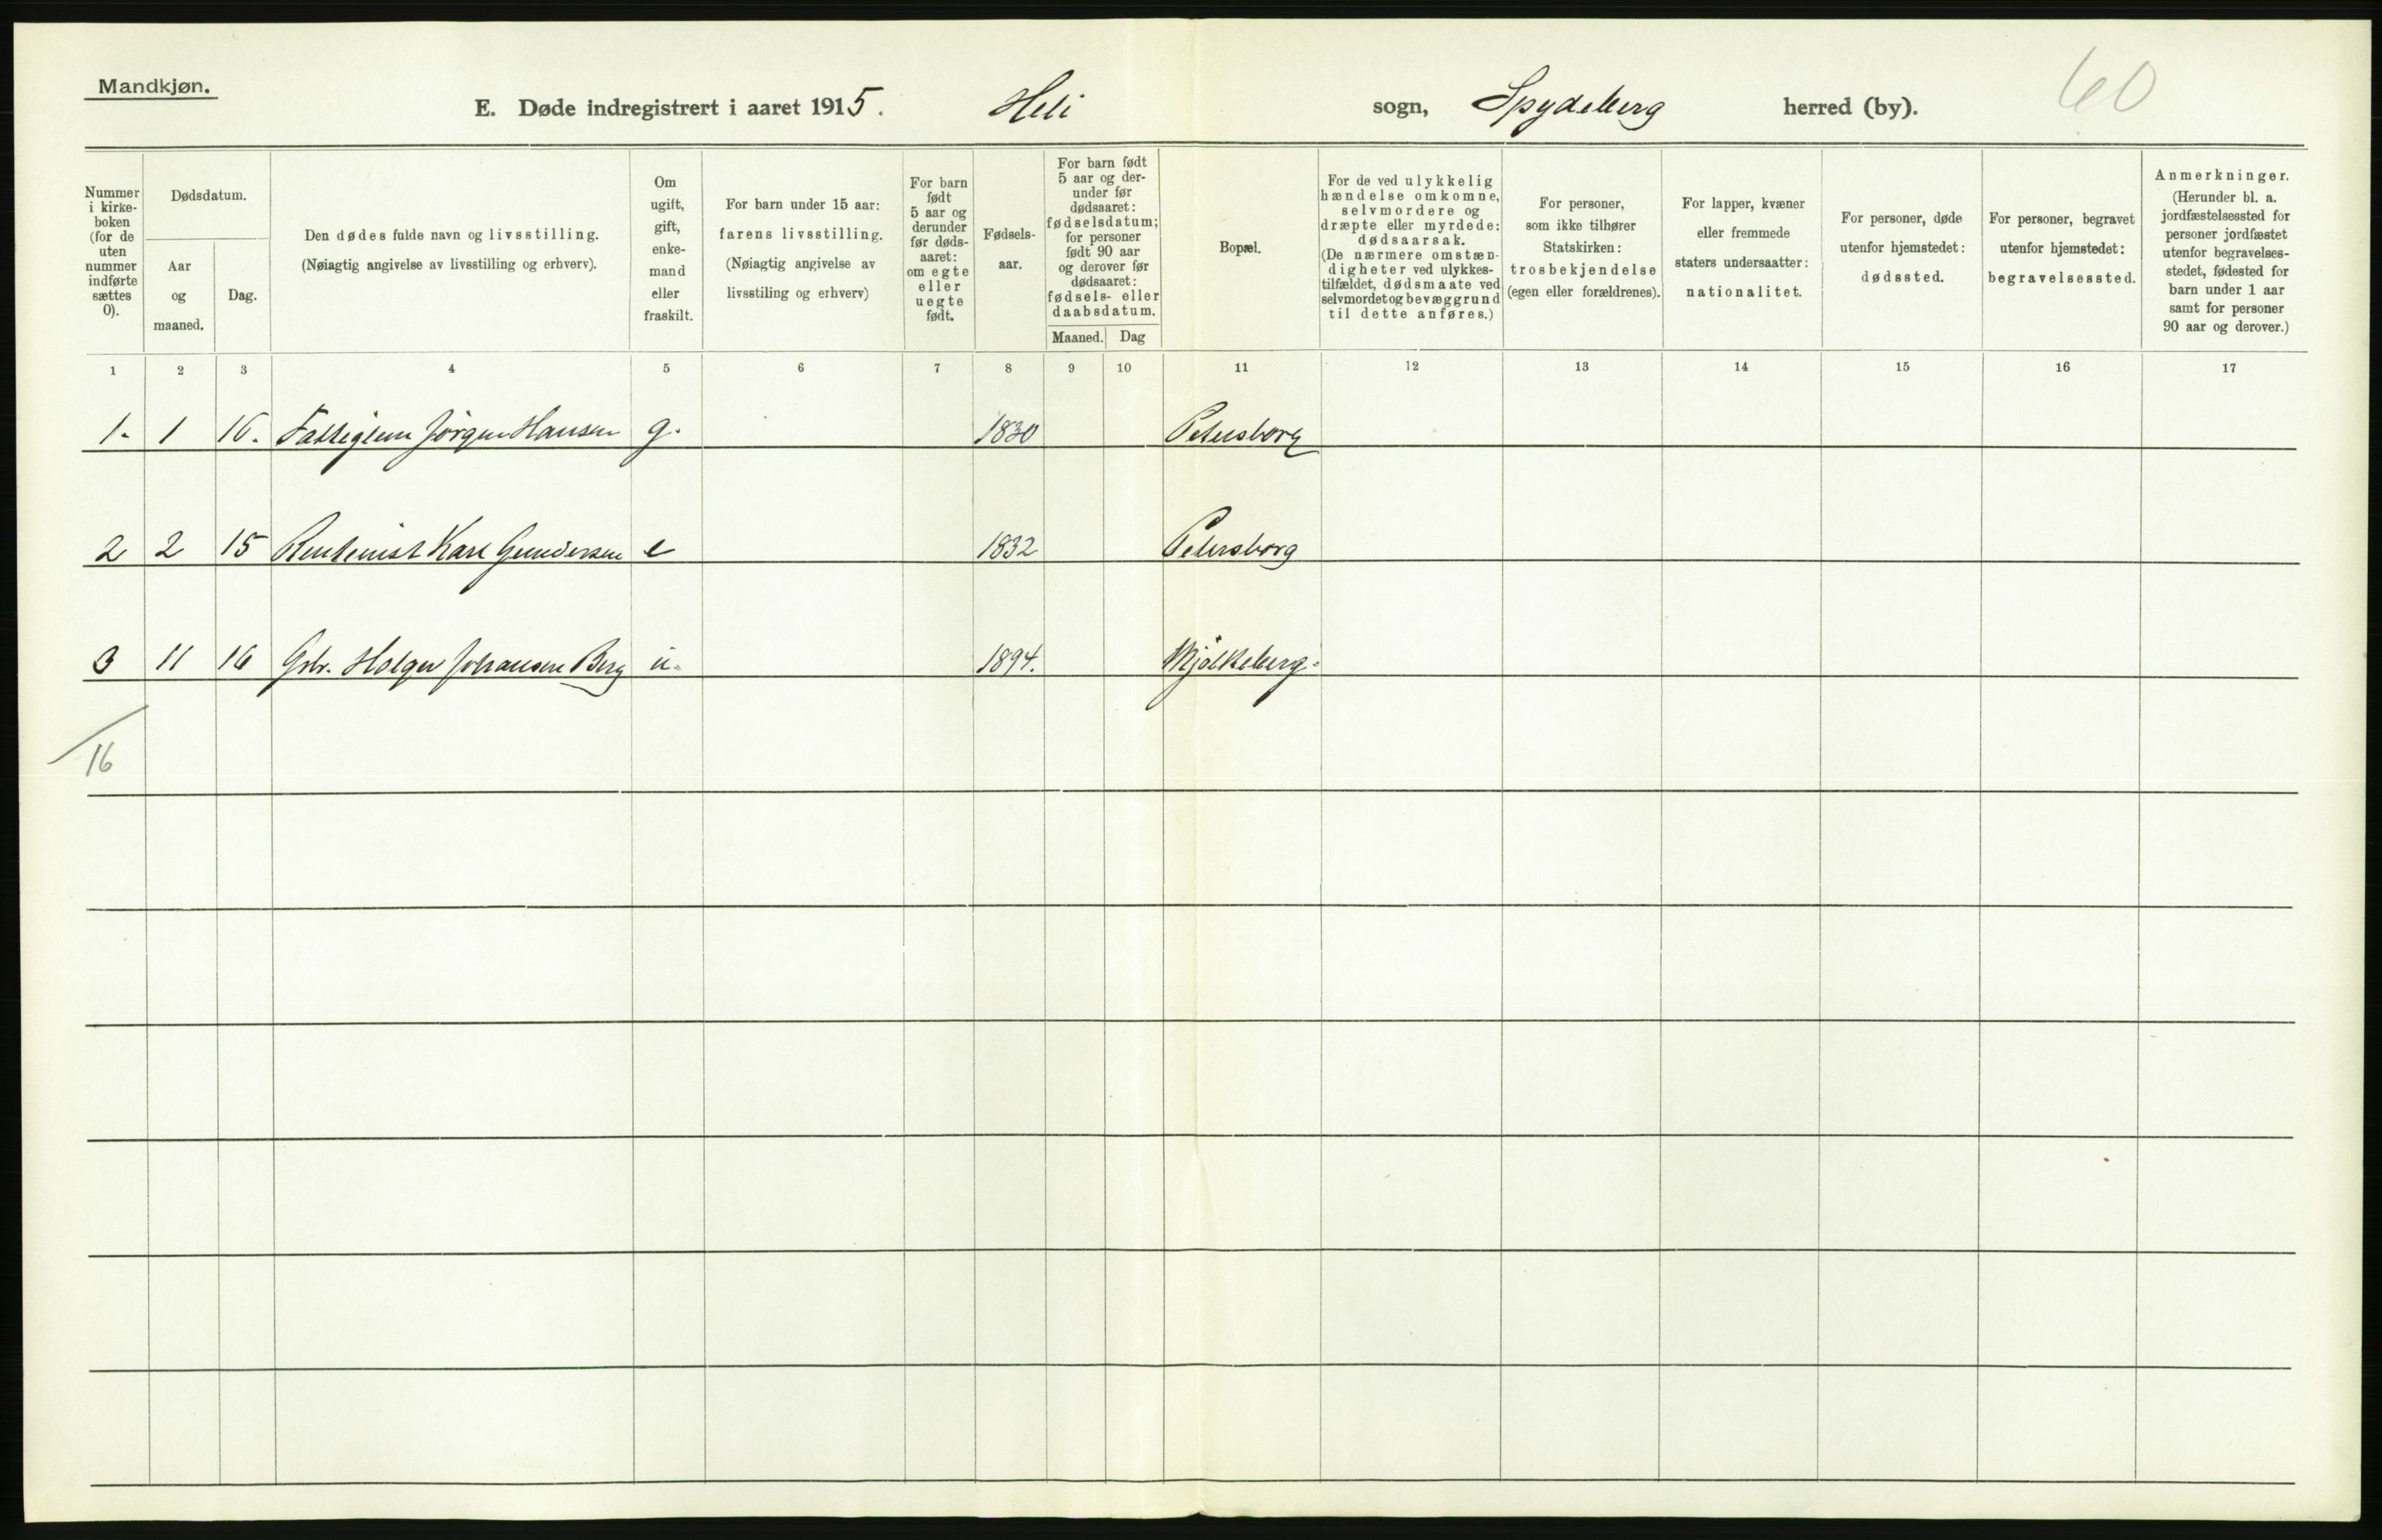 Mandkjøn.
E. Døde indregistrert i aaret 1915. Heli sogn, Spydeberg herred (by). 60
Nummer i kirke-
boken
(for de
uten
nummer
indførte
sættes
0).
Dødsdatum.
Aar
og
maaned.
Dag.
Den dødes fulde navn og livsstilling.
(Nøiagtig angivelse av livsstilling og erhverv).
Om
ugift,
gift,
enke-
mand
eller
fraskilt.
For barn under 15 aar:
farens livsstilling.
(Nøiagtig angivelse av
livsstiling og erhverv)
For barn
født
5 aar og
derunder
før døds-
aaret:
om egte
eller
uegte
født.
Fødsels-
aar.
For barn født
5 aar og der-
under før
dødsaaret:
fødselsdatum;
for personer
født 90 aar
og derover før
dødsaaret:
fødsels- eller
daabsdatum.
Maaned. Dag
Bopæl.
For de ved ulykkelig
hændelse omkomne,
selvmordere og
dræpte eller myrdede:
dødsaarsak.
(De nærmere omstæn-
digheter ved ulykkes-
tilfældet, dødsmaate ved
selvmordet og bevæggrund
til dette anføres.)
For personer,
som ikke tilhører
Statskirken:
trosbekjendelse
(egen eller forældrenes).
For lapper, kvæner
eller fremmede
staters undersaatter:
nationalitet.
For personer, døde
utenfor hjemstedet:
dødssted.
For personer, begravet
utenfor hjemstedet:
begravelsessted.
Anmerkninger.
(Herunder bl. a.
jordfæstelsessted for
personer jordfæstet
utenfor begravelses-
stedet, fødested for
barn under 1 aar
samt for personer
90 aar og derover.)
1 2 3 4 5 6 7 8 9 10 11 12 13 14 15 16 17
1. 1 16. Fattiglem Jörgen Hansen g. 1830 Petersborg
2 2 15 Rentenist Karl Gundersen e 1832 Petersborg
3 11 16 Gbr. Holger Johansen Berg u. 1894. Mjölkeberg.
16